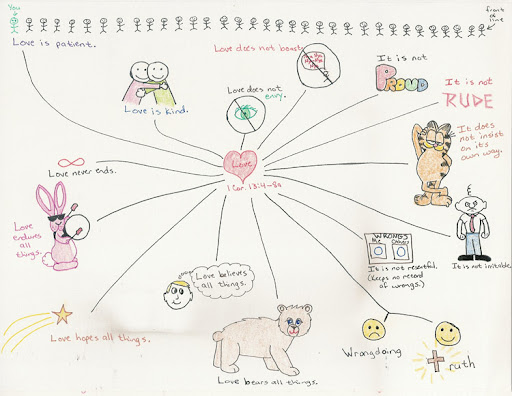 You
front
of
line
Love is patient.
Love does not boast.
It is not
PROUD
It is not
RUDE
Love is kind.
Love does not
envy.
It does
not insist
on it's
own way.
Love
1 Cor. 13:4-8a
Love never ends.
Love
endures
all
things.
WRONGS
Me
Others
It is not resentful.
(keeps no record
of wrongs.)
It is not irritable.
Love believes
all things.
Love hopes all things.
Love bears all things.
Wrongdoing
Truth